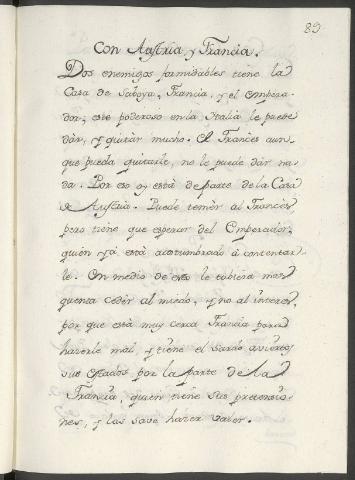 89
Con Austria, y Francia.
Dos enemigos formidables tiene la
Casa de Saboya, Francia, y el Empera-
dor; este poderoso en la Italia le puede
dàr, y quitàr mucho. El Francès aun-
que pueda quitarle, no le puede dàr na-
da. Por eso oy està de parte de la Casa
de Austria. Puede temèr al Francès
pero tiene que esperar del Emperador,
quièn yà està acostumbrado à contentar-
le. En medio de esto le tubiera mas
quenta cedèr al miedo, y no al interes,
por que està muy cerca Francia para
hacerle mal, y tiene el Sardo aviertos
sus estados por la parte de la
Francia, quièn tiene sus pretensio-
nes, y las save hacer valer.